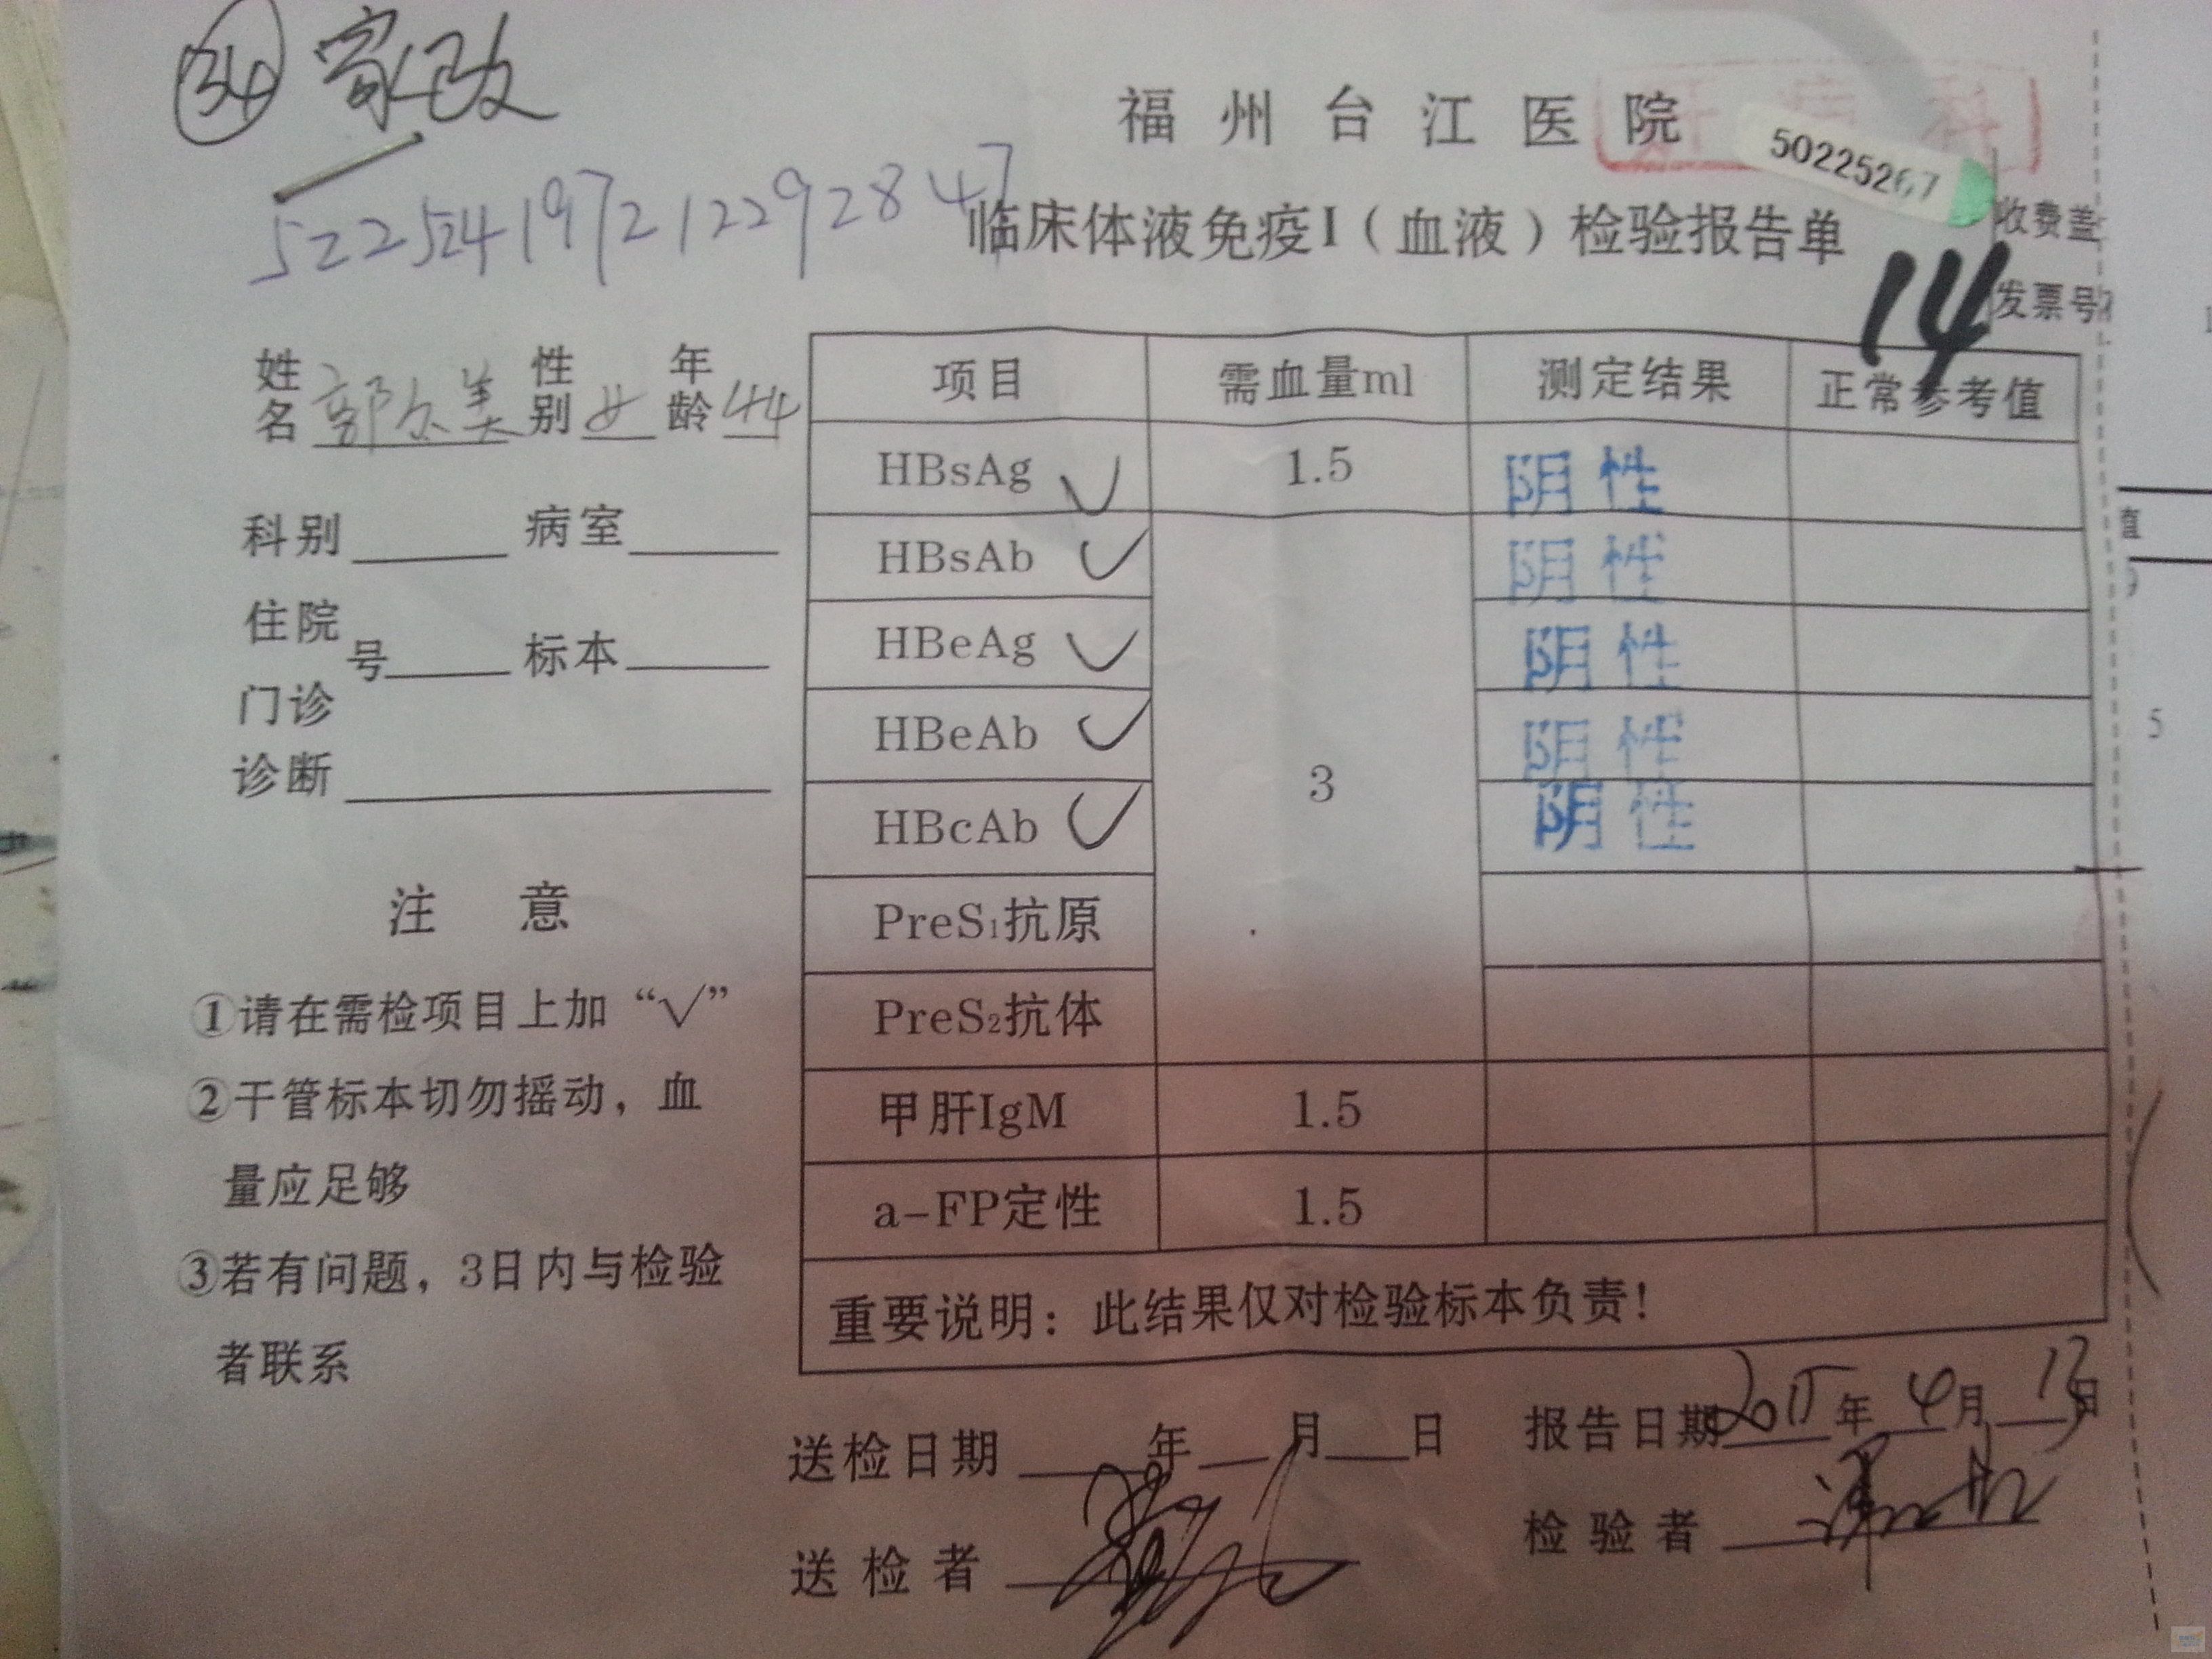 34 家政
福州台江医院
肝病科
50225267
522524197212292847
临床体液免疫I(血液)检验报告单
收费盖
14
发票号
姓名 郭尔美 性别 女 年龄 44
科别 病室
住院
号 标本
门诊
诊断
注意
①请在需检项目上加“√”
②干管标本切勿摇动，血
量应足够
③若有问题，3日内与检验
者联系
项目 需血量ml 测定结果 正常参考值
HBsAg √ 1.5 阴性
HBsAb √ 阴性
HBeAg √ 阴性
HBeAb √ 3 阴性
HBcAb √ 阴性
PreS₁抗原
PreS₂抗体
甲肝IgM 1.5
a-FP定性 1.5
重要说明：此结果仅对检验标本负责！
送检日期 年 月 日 报告日期 2015年 4月 13日
送检者 检验者
值
5